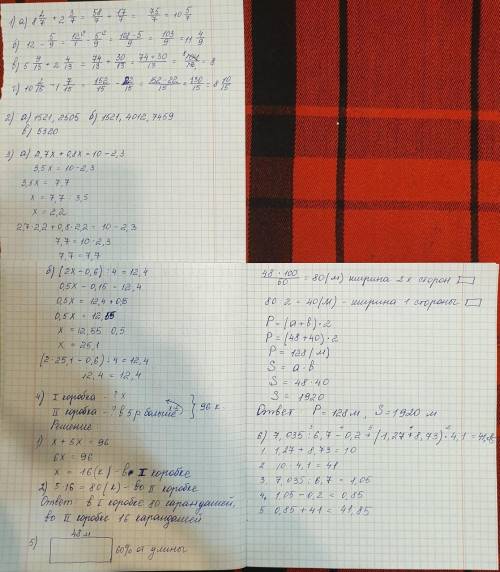 1) а) 8 2/7 + 2 3/7 = 58/7 + 17/7 = 75/7 = 10 5/7
б) 12 - 5/9 = 12/1 - 5/9 = 108-5/9 = 103/9 = 11 4/9
в) 5 9/13 + 2 4/13 = 74/13 + 30/13 = 74+30/13 = 8
г) 10 2/15 - 1 7/15 = 152/15 - 22/15 = 152-22/15 = 130/15 = 8 10/15
2) а) 1521, 2505 б) 1521, 4012, 7459
в) 5320
3) а) 2,7х + 0,8х = 10 - 2,3
3,5х = 10 - 2,3
3,5х = 7,7
х = 7,7 : 3,5
х = 2,2
2,7·2,2 + 0,8·2,2 = 10 - 2,3
7,7 = 10 - 2,3
7,7 = 7,7
б) (2х - 0,6) : 4 = 12,4
0,5х - 0,15 = 12,4
0,5х = 12,4 + 0,15
0,5х = 12,55
х = 12,55 : 0,5
х = 25,1
(2·25,1 - 0,6) : 4 = 12,4
12,4 = 12,4
4) I коробка - ? х
II коробка - ? в 5 р больше } 96 к.
Решение
1) х + 5х = 96
6х = 96
х = 16 (к) - в I коробке
2) 5·16 = 80 (к) - во II коробке
Ответ: в I коробке 80 карандашей,
во II коробке 16 карандашей
5) 48 м
60% от длины
48·100/60 = 80 (м) ширина 2х сторон
80:2 = 40 (м) - ширина 1 стороны
P = (а + в)·2
P = (48+40)·2
P = 128 (м)
S = а·в
S = 48·40
S = 1920
Ответ: P = 128 м, S = 1920 м
6) 7,035 : 6,7 - 0,2 + (1,27 + 8,73)·4,1 = 41,85
1. 1,27 + 8,73 = 10
2. 10·4,1 = 41
3. 7,035 : 6,7 = 1,05
4. 1,05 - 0,2 = 0,85
5. 0,85 + 41 = 41,85